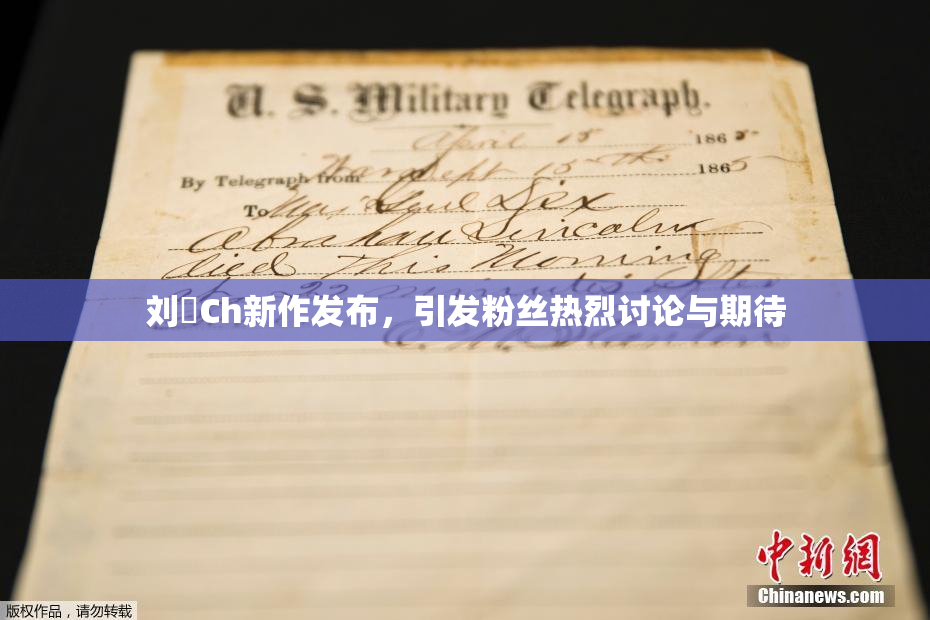 U. S. Military Telegraph.
April 15 1865
By Telegraph from War Dept 15th 1865
To Maj Genl Dix
Abraham Lincoln
died This Morning
22 minutes after
刘Ch新作发布，引发粉丝热烈讨论与期待
E. M. Stanton
中新网
Chinanews.com
版权作品，请勿转载